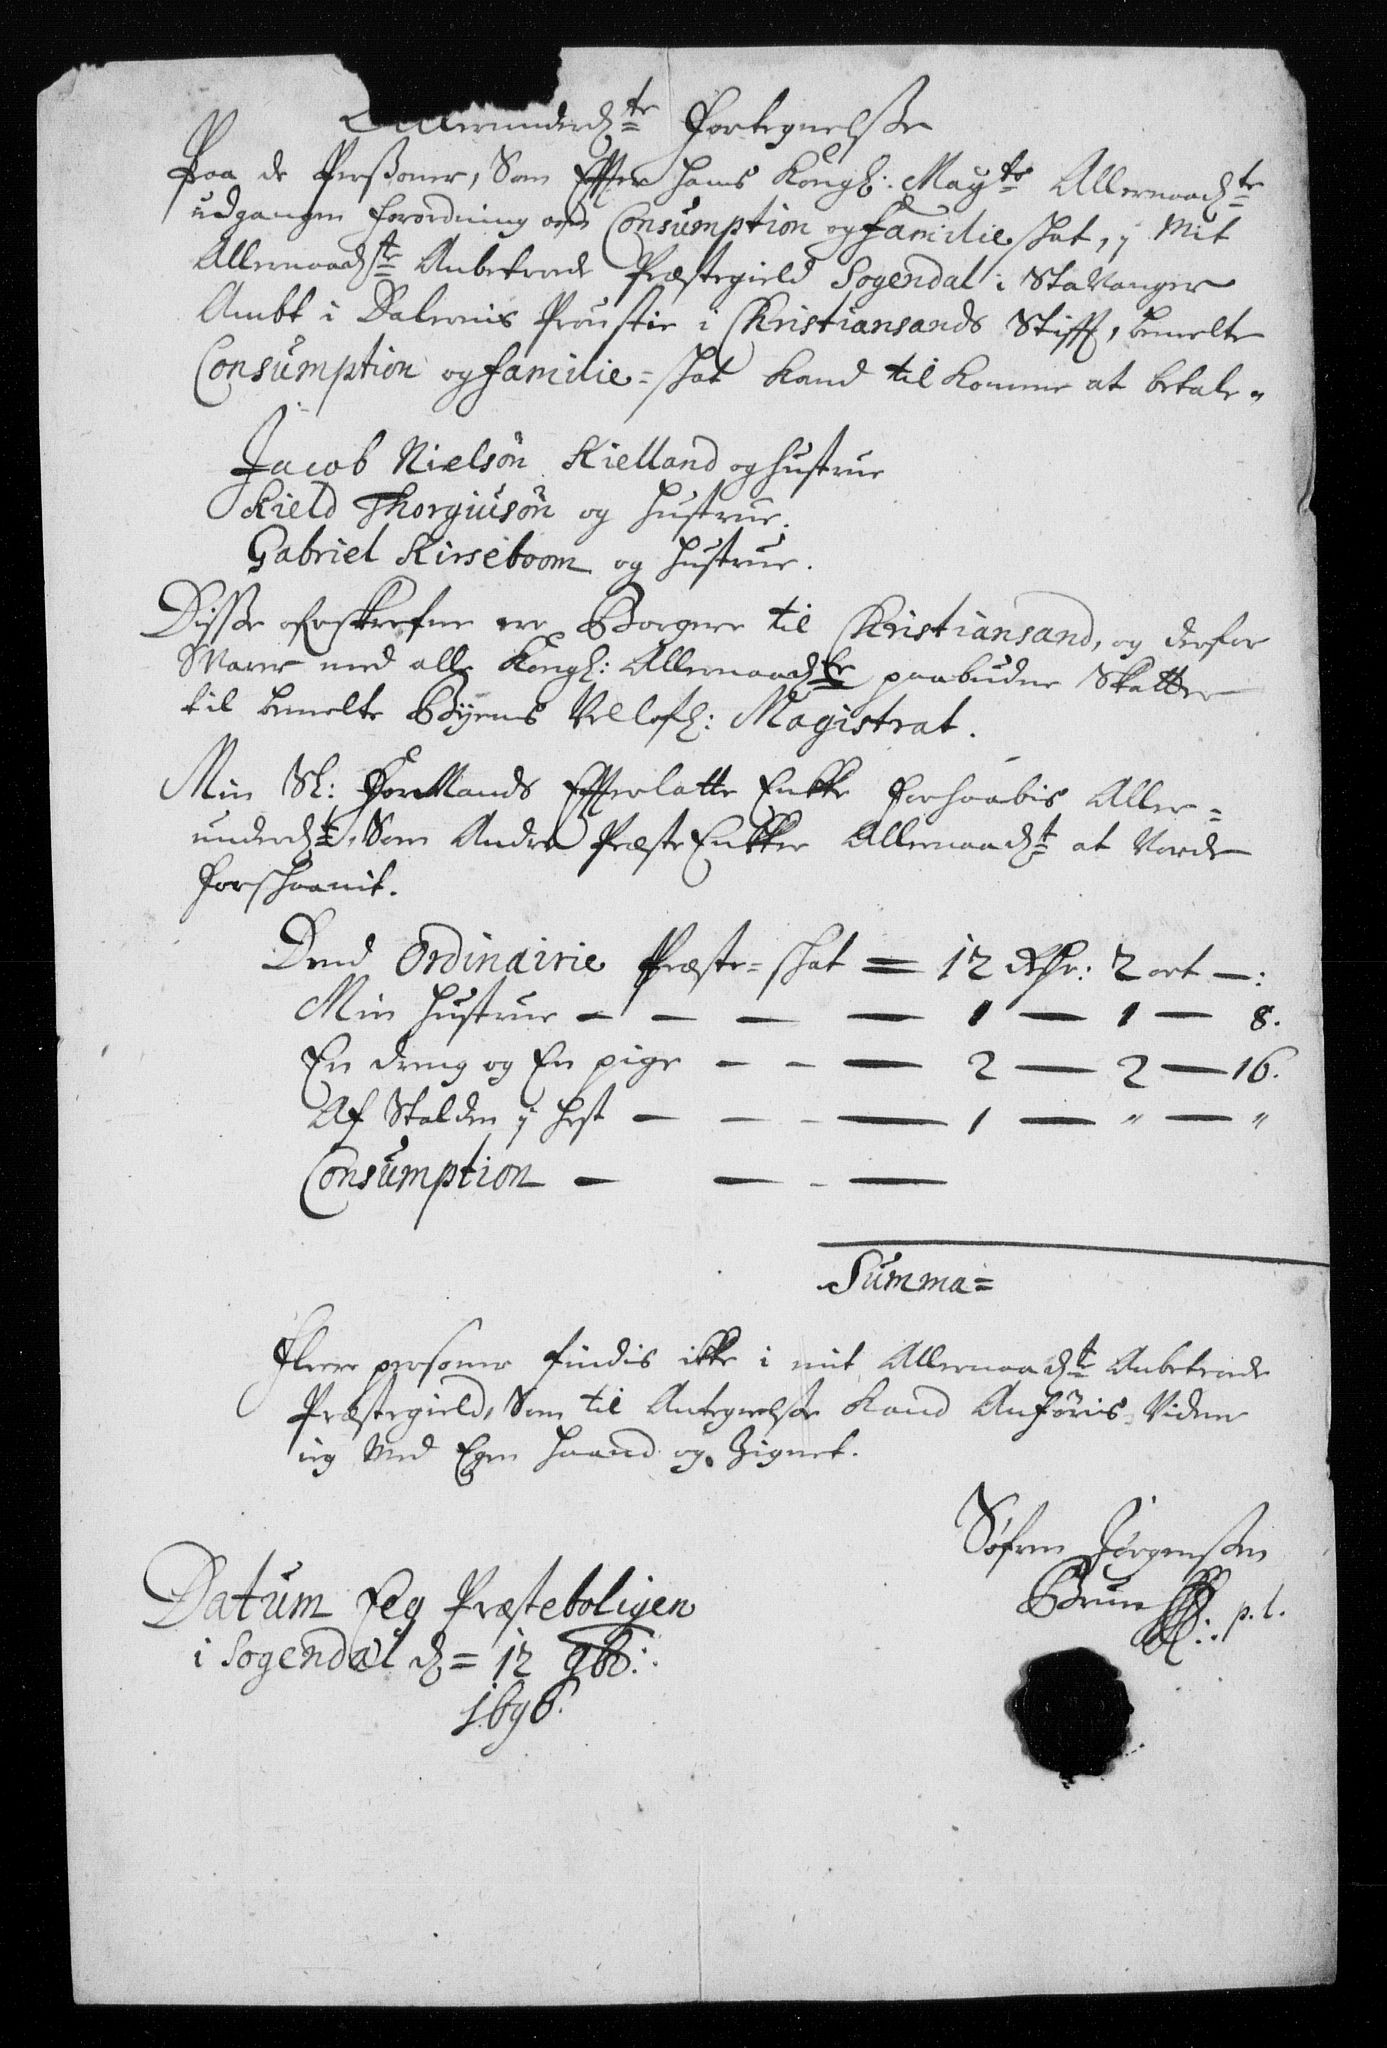 Allerunderd:te Fortegnelsse
Paa de Perssoner, Som Effter Hans Kongl: May:ts Allernaad:te
udgangen forordning om Consumption og familie skat, j Mit
Allernaadh:ste Anbetroede Præstegield Sogendal i Stavanger
Ambt i Dalernis Proustie i Christiansands Stifft, bemelte
Consumption og familie-skat kand til komme at betale.
Jacob Nielsön Kielland og hustrue
Kield Thorgiusön og hustrue.
Gabriel Kirseboom og hustrue.
Disse ofverskrefne ere Borgere til Christiansand, og derfor
Svarer med alle Kongl: Allernaad:te paabudne Skatter
til bemelte Byens Vellofl: Magistrat.
Min Sl: ForMands Effterlatte Enkke forhaabis Aller-
underd:t, Som Andre PræsteEnkker Allernaad:t at Vorde
forschaanit.
Dend Ordinairie Præste-skat = 12 Rdr: 2 ort —:
Min hustrue — — — — 1 — 1 — 8.
En dreng og En pige — - — 2 — 2 — 16.
Af Stalden j hest — — - — 1 — " — "
Consumption — — - —
Summa=
Fleere personer findis ikke i mit Allernaad:t Anbetroede
Præstegield, Som til Antegnelsse kand Anföris, Vidner
ieg Med Egen haand og Zignet.
Söfren Jörgenssen
Brun p. l.
Datum Peg Præsteboligen
i Sogendal d= 12 9br:
1696.